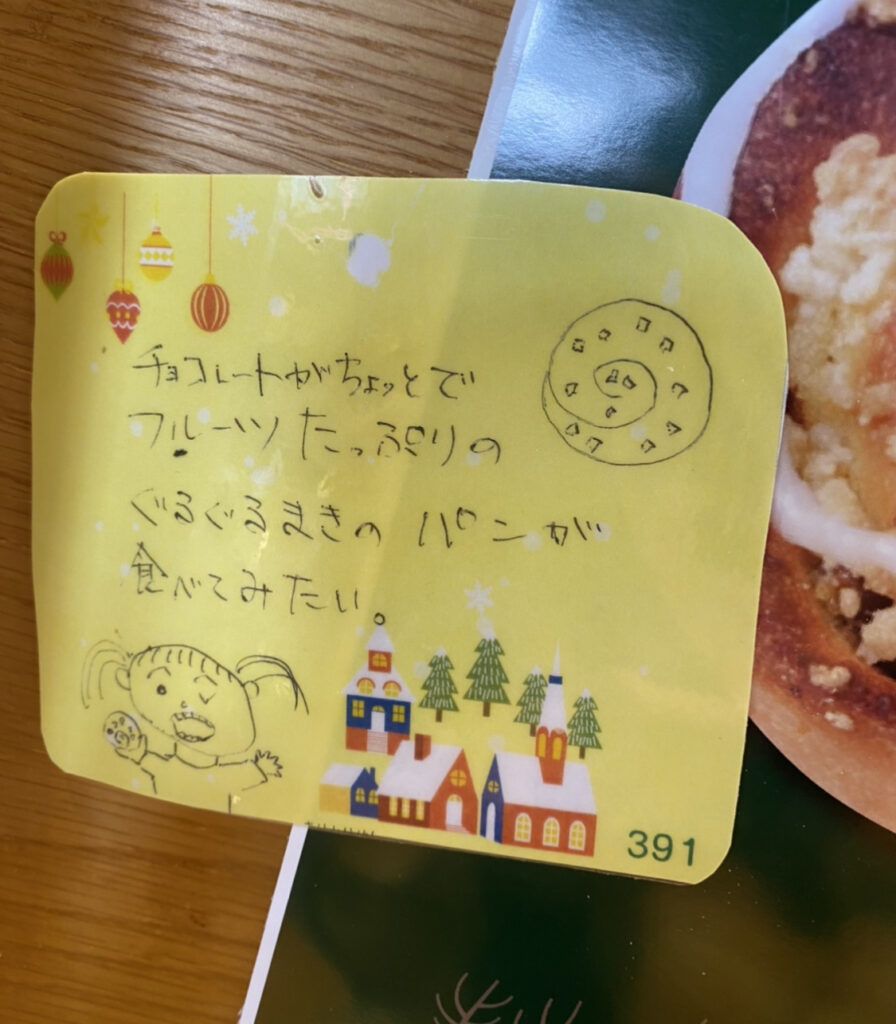 チョコレートがちょっとで
フルーツたっぷりの
ぐるぐるまきのパンが
食べてみたい。
391